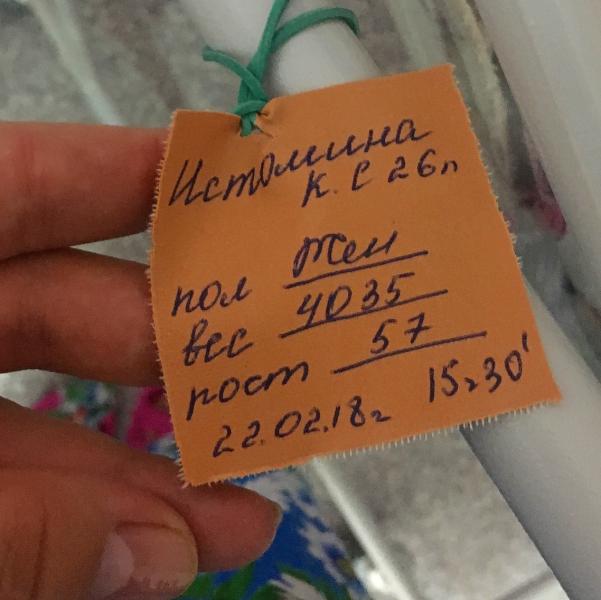 Истомина
К. С 26л
пол Жен
вес 4035
рост 57
22.02.18г 15ч30'